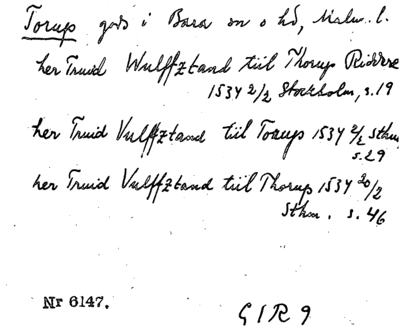 Torup gods i Bara sn o hd, Malm. l.
her Truid Wulffztand tiil Thorup Riddere
1534 2/2 Stockholm, s.19
her Truid Vulffztand tiil Torup 1534 2/2 Sthm
s.29
her Truid Vulffztand tiil Thorup 1534 20/2
Sthm. s. 46
Nr 6147.
G I R 9